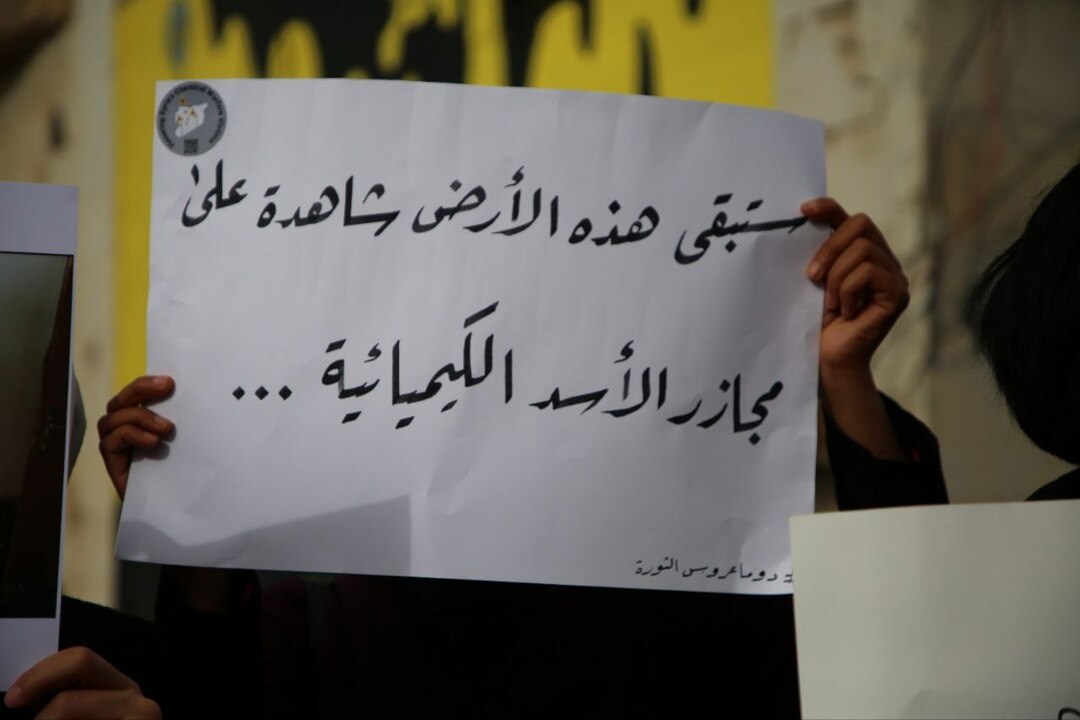 ستبقى هذه الأرض شاهدة على
مجازر الأسد الكيميائية ...
# دوما عروس الثورة